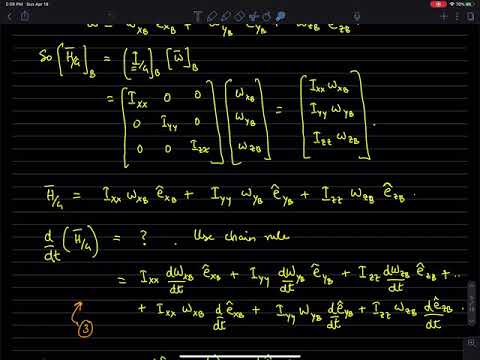 5:09 PM Sun Apr 19
70%
ω̄ = ω_xB ê_xB + ω_yB ê_yB + ω_zB ê_zB
So [H̄/G]_B = [I/G]_B [ω̄]_B
= [I_xx 0 0; 0 I_yy 0; 0 0 I_zz] [ω_xB; ω_yB; ω_zB] = [I_xx ω_xB; I_yy ω_yB; I_zz ω_zB].
H̄/G = I_xx ω_xB ê_xB + I_yy ω_yB ê_yB + I_zz ω_zB ê_zB.
d/dt (H̄/G) = ? . Use chain rule
= I_xx dω_xB/dt ê_xB + I_yy dω_yB/dt ê_yB + I_zz dω_zB/dt ê_zB + ..
+ I_xx ω_xB d/dt ê_xB + I_yy ω_yB dê_yB/dt + I_zz ω_zB d/dt ê_zB .
③